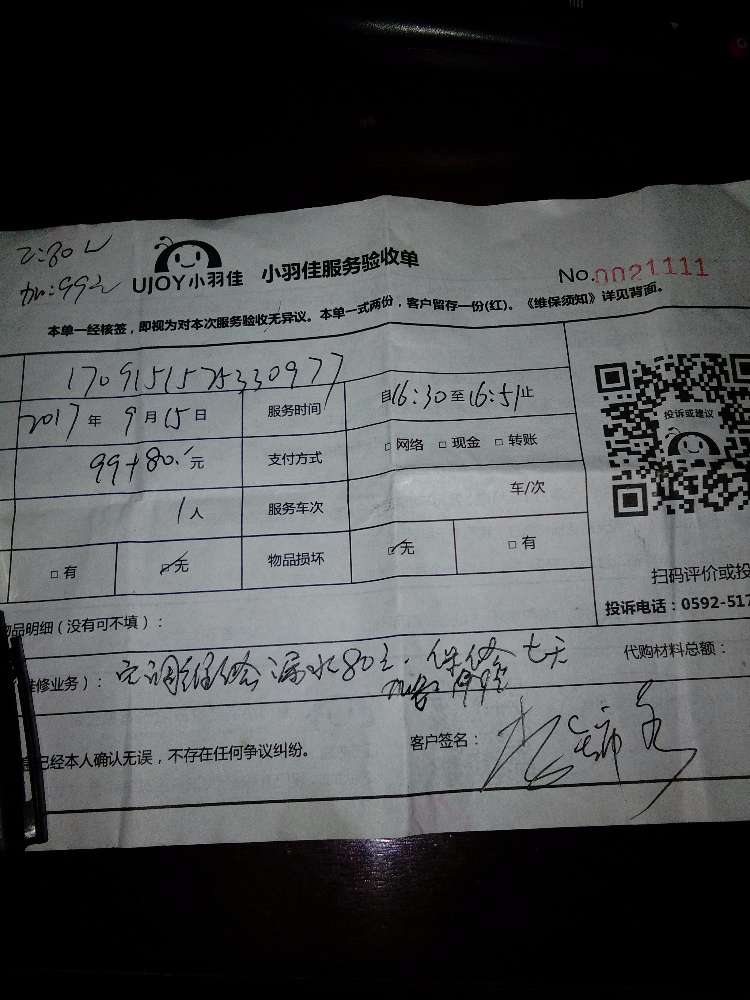 UJOY小羽佳 小羽佳服务验收单
No.0021111
本单一经核签，即视为对本次服务验收无异议。本单一式两份，客户留存一份(红)。《维保须知》详见背面。
170915157533097７
2017年9月15日 服务时间 自16:30至16:51止
99+80.元 支付方式 □网络 □现金 □转账
1人 服务车次 车/次
□有 □无 物品损坏 □无 □有
投诉或建议
扫码评价或投
投诉电话：0592-517
物品明细（没有可不填）：
维修业务）： 空调维修漏水80元. 保修七天 代购材料总额：
已经本人确认无误，不存在任何争议纠纷。 客户签名：